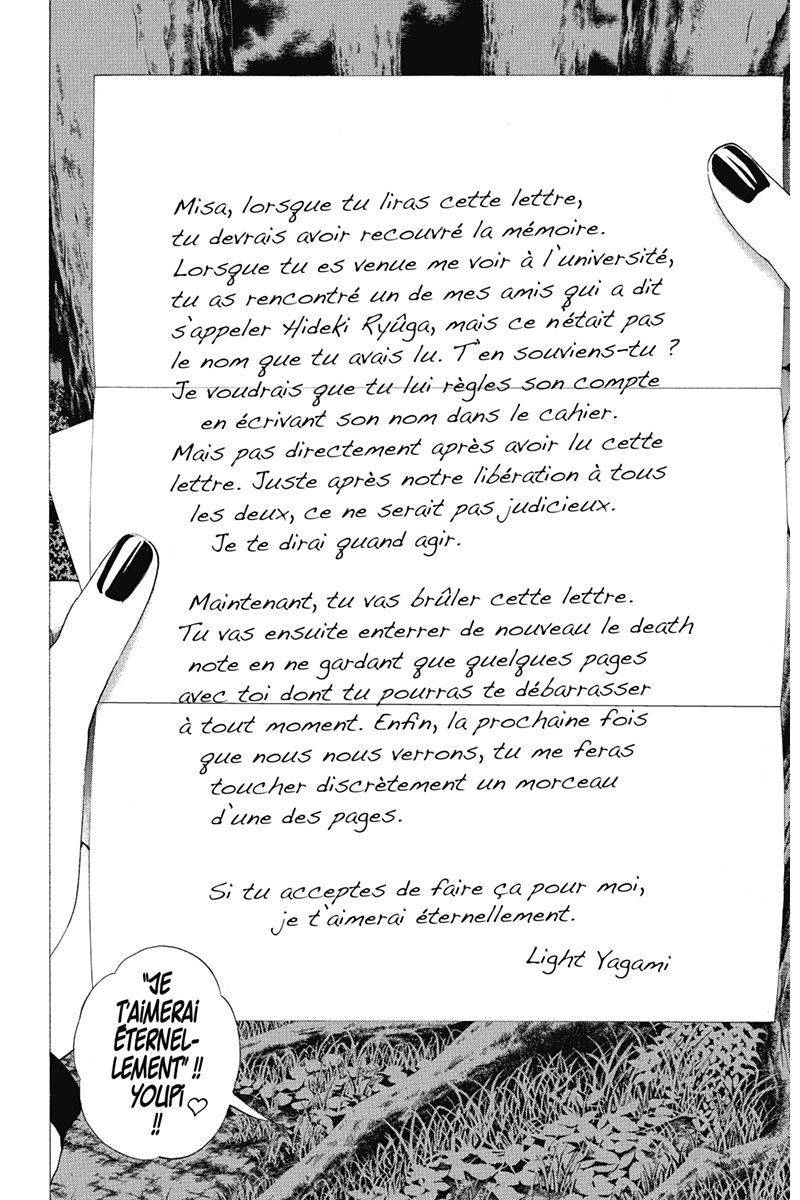 Misa, lorsque tu liras cette lettre,
tu devrais avoir recouvré la mémoire.
Lorsque tu es venue me voir à l'université,
tu as rencontré un de mes amis qui a dit
s'appeler Hideki Ryûga, mais ce n'était pas
le nom que tu avais lu. T'en souviens-tu ?
Je voudrais que tu lui règles son compte
en écrivant son nom dans le cahier.
Mais pas directement après avoir lu cette
lettre. Juste après notre libération à tous
les deux, ce ne serait pas judicieux.
Je te dirai quand agir.
Maintenant, tu vas brûler cette lettre.
Tu vas ensuite enterrer de nouveau le death
note en ne gardant que quelques pages
avec toi dont tu pourras te débarrasser
à tout moment. Enfin, la prochaine fois
que nous nous verrons, tu me feras
toucher discrètement un morceau
d'une des pages.
Si tu acceptes de faire ça pour moi,
je t'aimerai éternellement.
Light Yagami
"JE
T'AIMERAI
ÉTERNEL-
LEMENT" !!
YOUPI ♡
!!